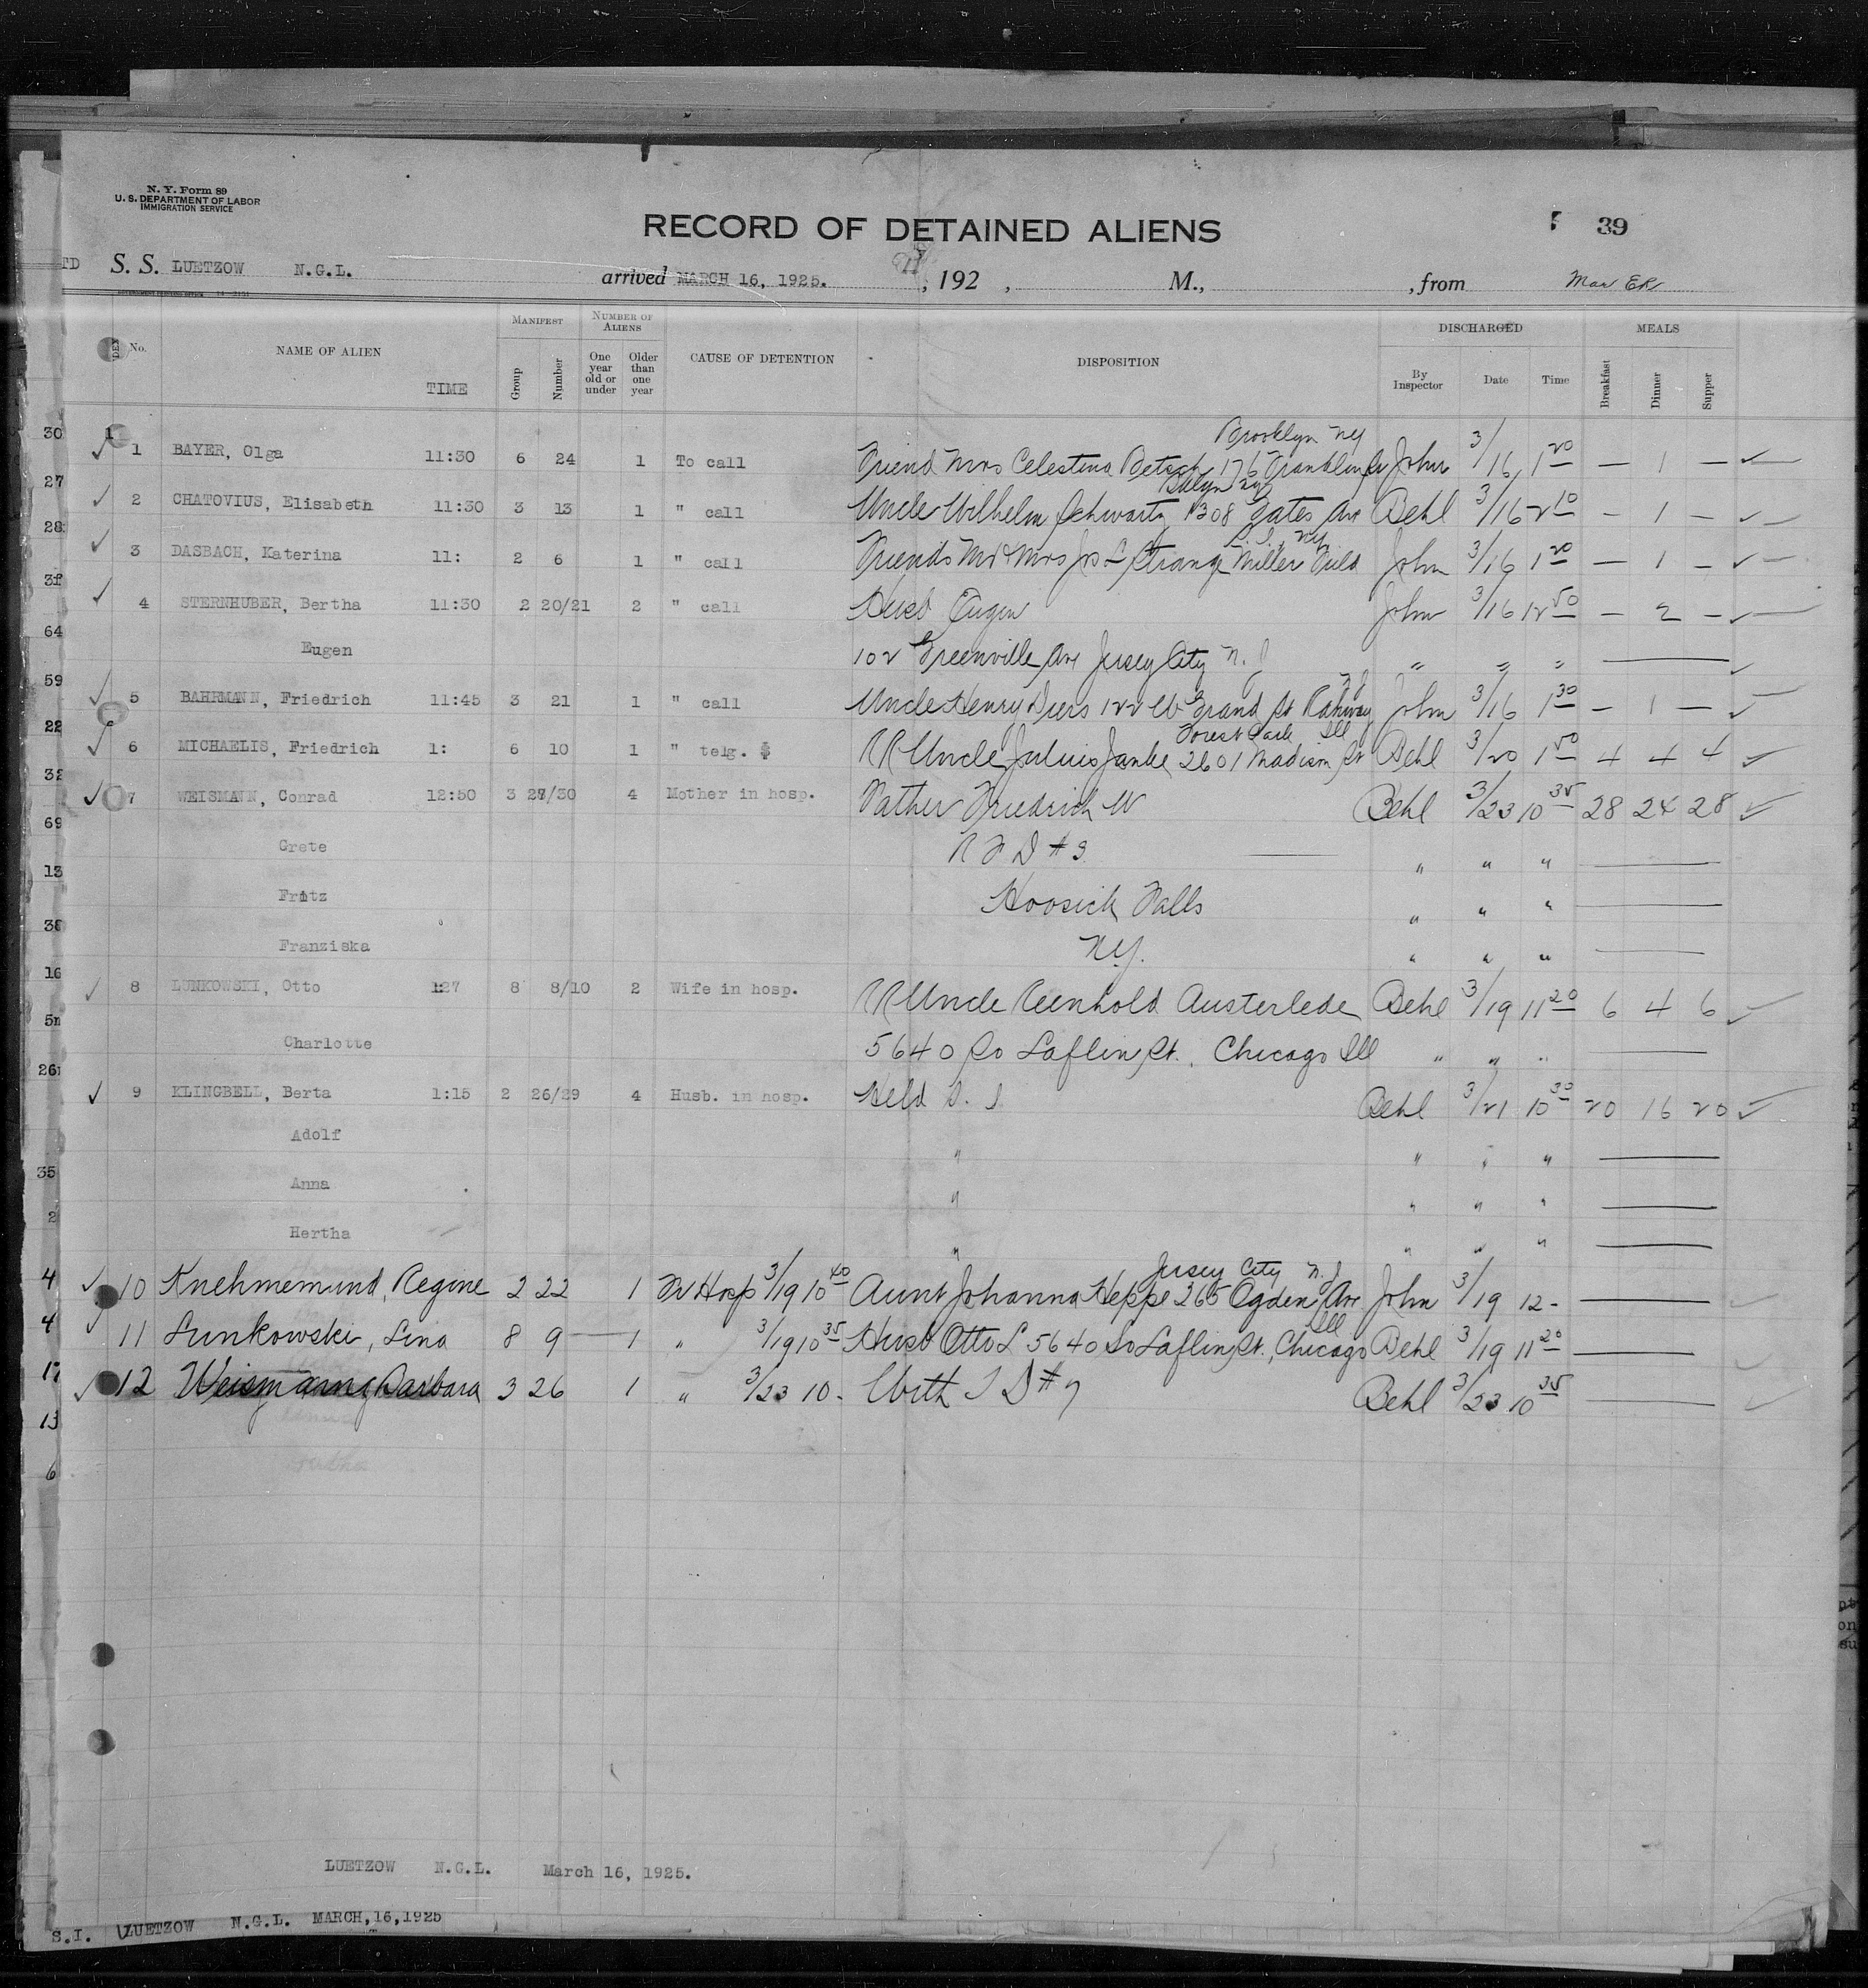 N. Y. Form 89
U. S. DEPARTMENT OF LABOR
IMMIGRATION SERVICE
RECORD OF DETAINED ALIENS 39
TD S. S. LUETZOW N.G.L. arrived MARCH 16, 1925. , 192 , M., , from
DET No. NAME OF ALIEN TIME MANIFEST Group Number NUMBER OF ALIENS One year old or under Older than one year CAUSE OF DETENTION DISPOSITION DISCHARGED By Inspector Date Time MEALS Breakfast Dinner Supper
Brooklyn NY
30 1 1 BAYER, Olga 11:30 6 24 1 To call Friend Mrs Celestina Betsch 176 Franklin St John 3/16 1 20 — 1 —
Bklyn NY
27 2 CHATOVIUS, Elisabeth 11:30 3 13 1 " call Uncle Wilhelm Schwartz 1308 Gates Ave Behl 3/16 2 10 — 1 —
S. I. NY
28 3 DASBACH, Katerina 11: 2 6 1 " call Friends Mr & Mrs Jos L Strange Miller Field John 3/16 1 20 — 1 —
31 4 STERNHUBER, Bertha 11:30 2 20/21 2 " call Husb Eugen John 3/16 12 50 — 2 —
64 Eugen 102 Greenville Ave Jersey City N. J " " "
N J
59 5 BAHRMANN, Friedrich 11:45 3 21 1 " call Uncle Henry Diers 122 W Grand St Rahway John 3/16 1 30 — 1 —
Forest Park Ill
22 6 MICHAELIS, Friedrich 1: 6 10 1 " telg. $ RR Uncle Julius Janke 2601 Madison St Behl 3/20 1 50 4 4 4
32 7 WEISMANN, Conrad 12:50 3 27/30 4 Mother in hosp. Father Friedrich W Behl 3/23 10 35 28 24 28
69 Grete R F D # 3 " " "
13 Fritz Hoosick Falls " " "
38 Franziska N.Y. " " "
16 8 LUNKOWSKI, Otto 1:27 8 8/10 2 Wife in hosp. RR Uncle Reinhold Austerlede Behl 3/19 11 20 6 4 6
5 Charlotte 5640 So Laflin St. Chicago Ill " " "
26 9 KLINGBELL, Berta 1:15 2 26/29 4 Husb. in hosp. Held S. I Behl 3/21 10 30 20 16 20
Adolf " " " "
35 Anna " " " "
2 Hertha " " " "
Jersey City N. J
4 10 Knehmemund, Regine 2 22 1 Fr Hosp 3/19 10 40 Aunt Johanna Heppe 265 Ogden Ave John 3/19 12 -
Ill
4 11 Lunkowski, Lina 8 9 1 " 3/19 10 35 Husb Otto L 5640 So Laflin St., Chicago Behl 3/19 11 20
17 12 Weismann, Barbara 3 26 1 " 3/23 10 - With T D # 7 Behl 3/23 10 35
13
6
LUETZOW N.G.L. March 16, 1925.
S.I. LUETZOW N.G.L. MARCH,16,1925